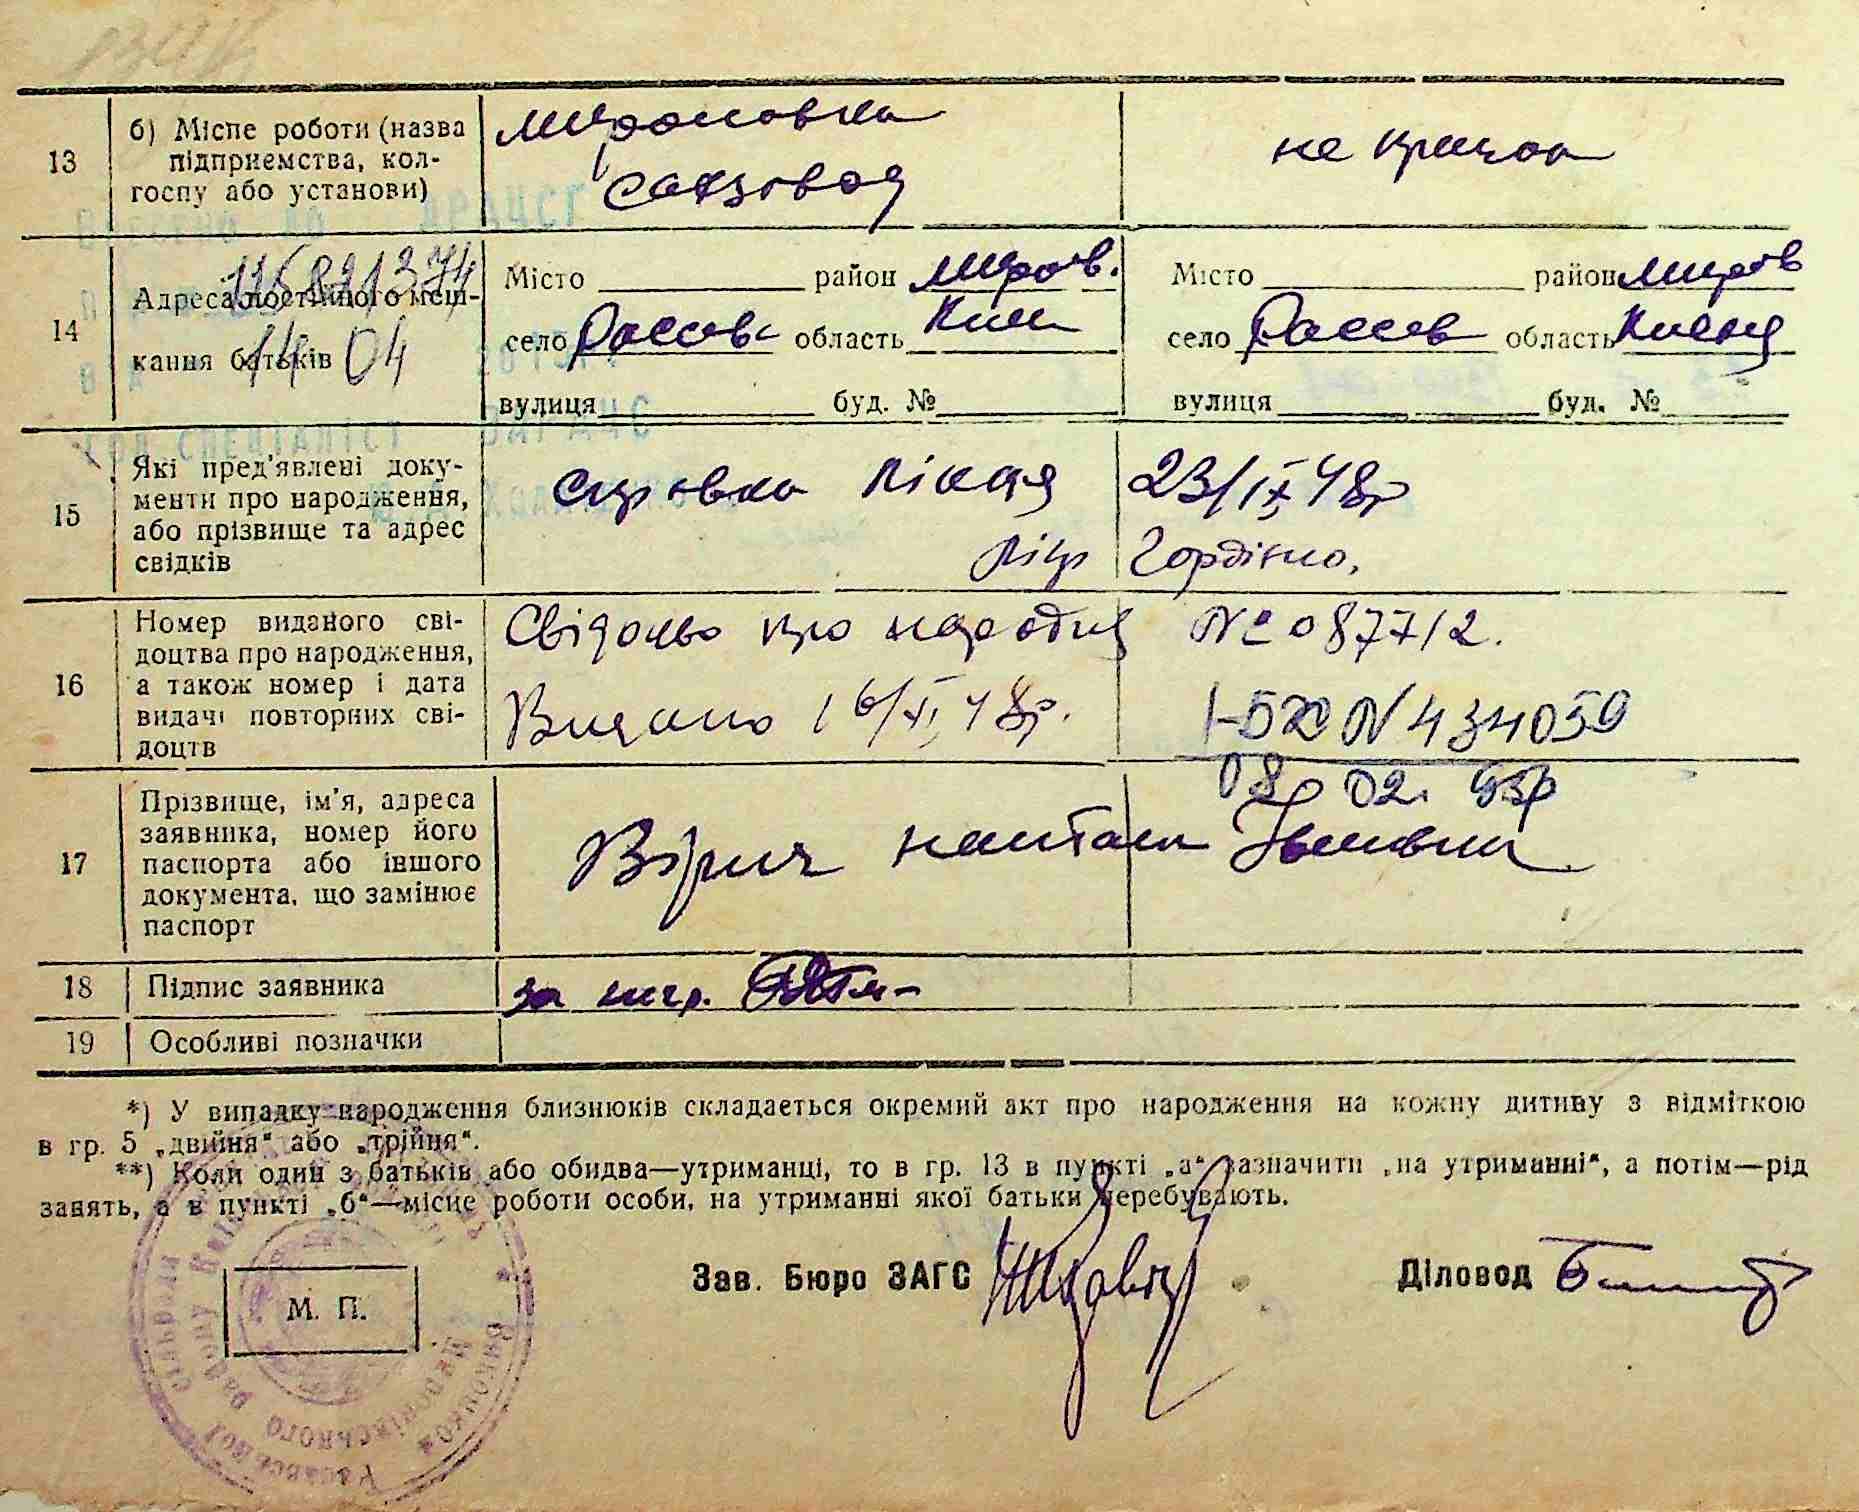 13
б) Місце роботи (назва
підприємства, кол-
госпу або установи)
мироновка
не працює
14
11582 1374
Адреса постійного меш-
кання батьків
14 04
Місто район миров.
село Россава область Київ
вулиця буд. №
Місто район миров
село Россав область Київ
вулиця буд. №
ГОЛ.СПЕЦІАЛІСТ
15
Які пред'явлені доку-
менти про народження,
або прізвище та адрес
свідків
Справка лікаря 23/IX 48р
Лікар Гордієнко.
16
Номер виданого сві-
доцтва про народження,
а також номер і дата
видачі повторних сві-
доцтв
Свідоцтво про народжен № 087712.
Видано 16/XI 48р.
N 434059
08р 02. 93р
17
Прізвище, ім'я, адреса
заявника, номер його
паспорта або іншого
документа, що замінює
паспорт
Вірич Івановна
18
Підпис заявника
за негр.
19
Особливі позначки
*) У випадку народження близнюків складається окремий акт про народження на кожну дитину з відміткою
в гр. 5 „двійня“ або „трійня“.
**) Коли один з батьків або обидва—утриманці, то в гр. 13 в пункті „а“ зазначити „на утриманні“, а потім—рід
занять, а в пункті „б“—місце роботи особи, на утриманні якої батьки перебувають.
М. П.
Зав. Бюро ЗАГС
Діловод